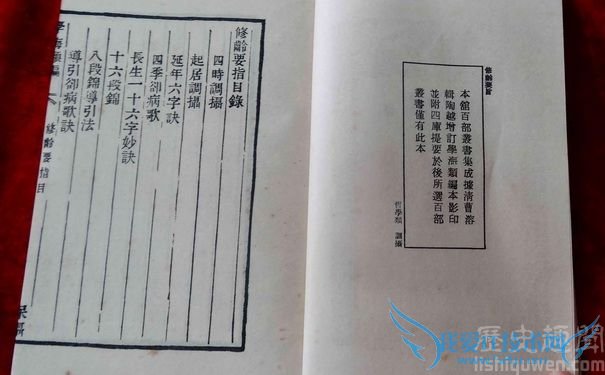 修齡要旨
本館百部叢書集成據淸曹溶
輯陶越增訂學海類編本影印
並附四庫提要於後所選百部
叢書僅有此本
哲學類 調攝
修齡要指目錄
四時調攝
起居調攝
延年六字訣
四季却病歌
長生一十六字妙訣
十六段錦
八段錦導引法
導引却病歌訣
學海類編
修齡要指目
歷史趣聞
lishiquwen.com